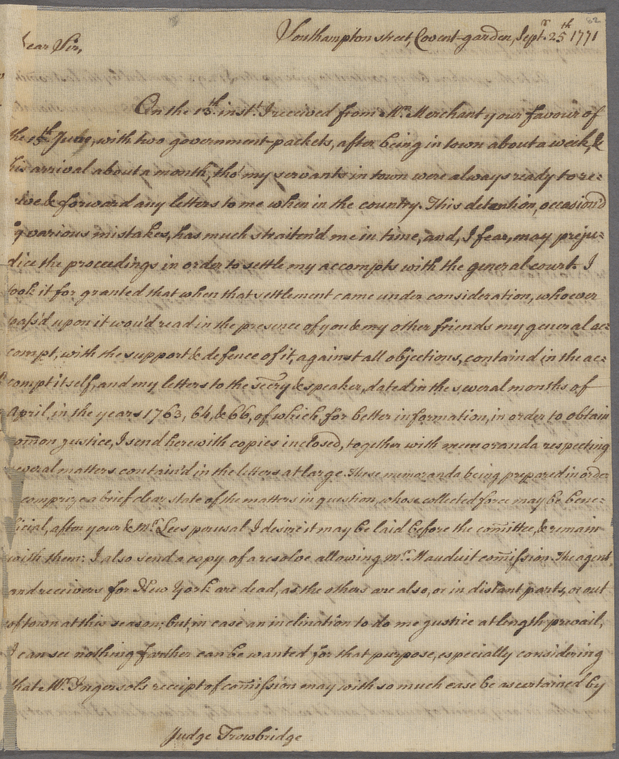 82
Southampton street, Covent-garden, Septr. 25th 1771
Dear Sir,
On the 13th. inst. I received from Mr. Merchant your favour of
the 15th July, with two government packets, after being in town about a week, &
his arrival about a month, tho' my servants in town were always ready to re-
ceive & forward any letters to me when in the country. This detention, occasion'd
by various mistakes, has much straiten'd me in time, and, I fear, may preju-
dice the proceedings in order to settle my accompts with the general court. I
took it for granted that when that settlement came under consideration, whoever
pass'd upon it wou'd read in the presence of you & my other friends my general ac-
compt, with the support & defence of it, against all objections, contain'd in the ac-
compt itself, and my letters to the secry & speaker, dated in the several months of
April in the years 1763, 64, & 66, of which, for better information, in order to obtain
common justice, I send herewith copies inclosed, together with memoranda respecting
several matters contain'd in the letters at large. These memoranda being prepared in order
to comprize a brief clear state of the matters in question, whose collected force may be bene-
ficial, after your & Mr. Lees perusal I desire it may be laid before the comittee, & remain
with them: I also send a copy of a resolve allowing Mr. Mauduit comission. The agent,
and receivers for New York are dead, as the others are also, or in distant parts, or out
of town at this season; but, in case an inclination to do me justice at length prevail,
I can see nothing farther can be wanted for that purpose, especially considering
that Mr. Ingersol's receipt of comission may with so much ease be ascertained by
Judge Trowbridge